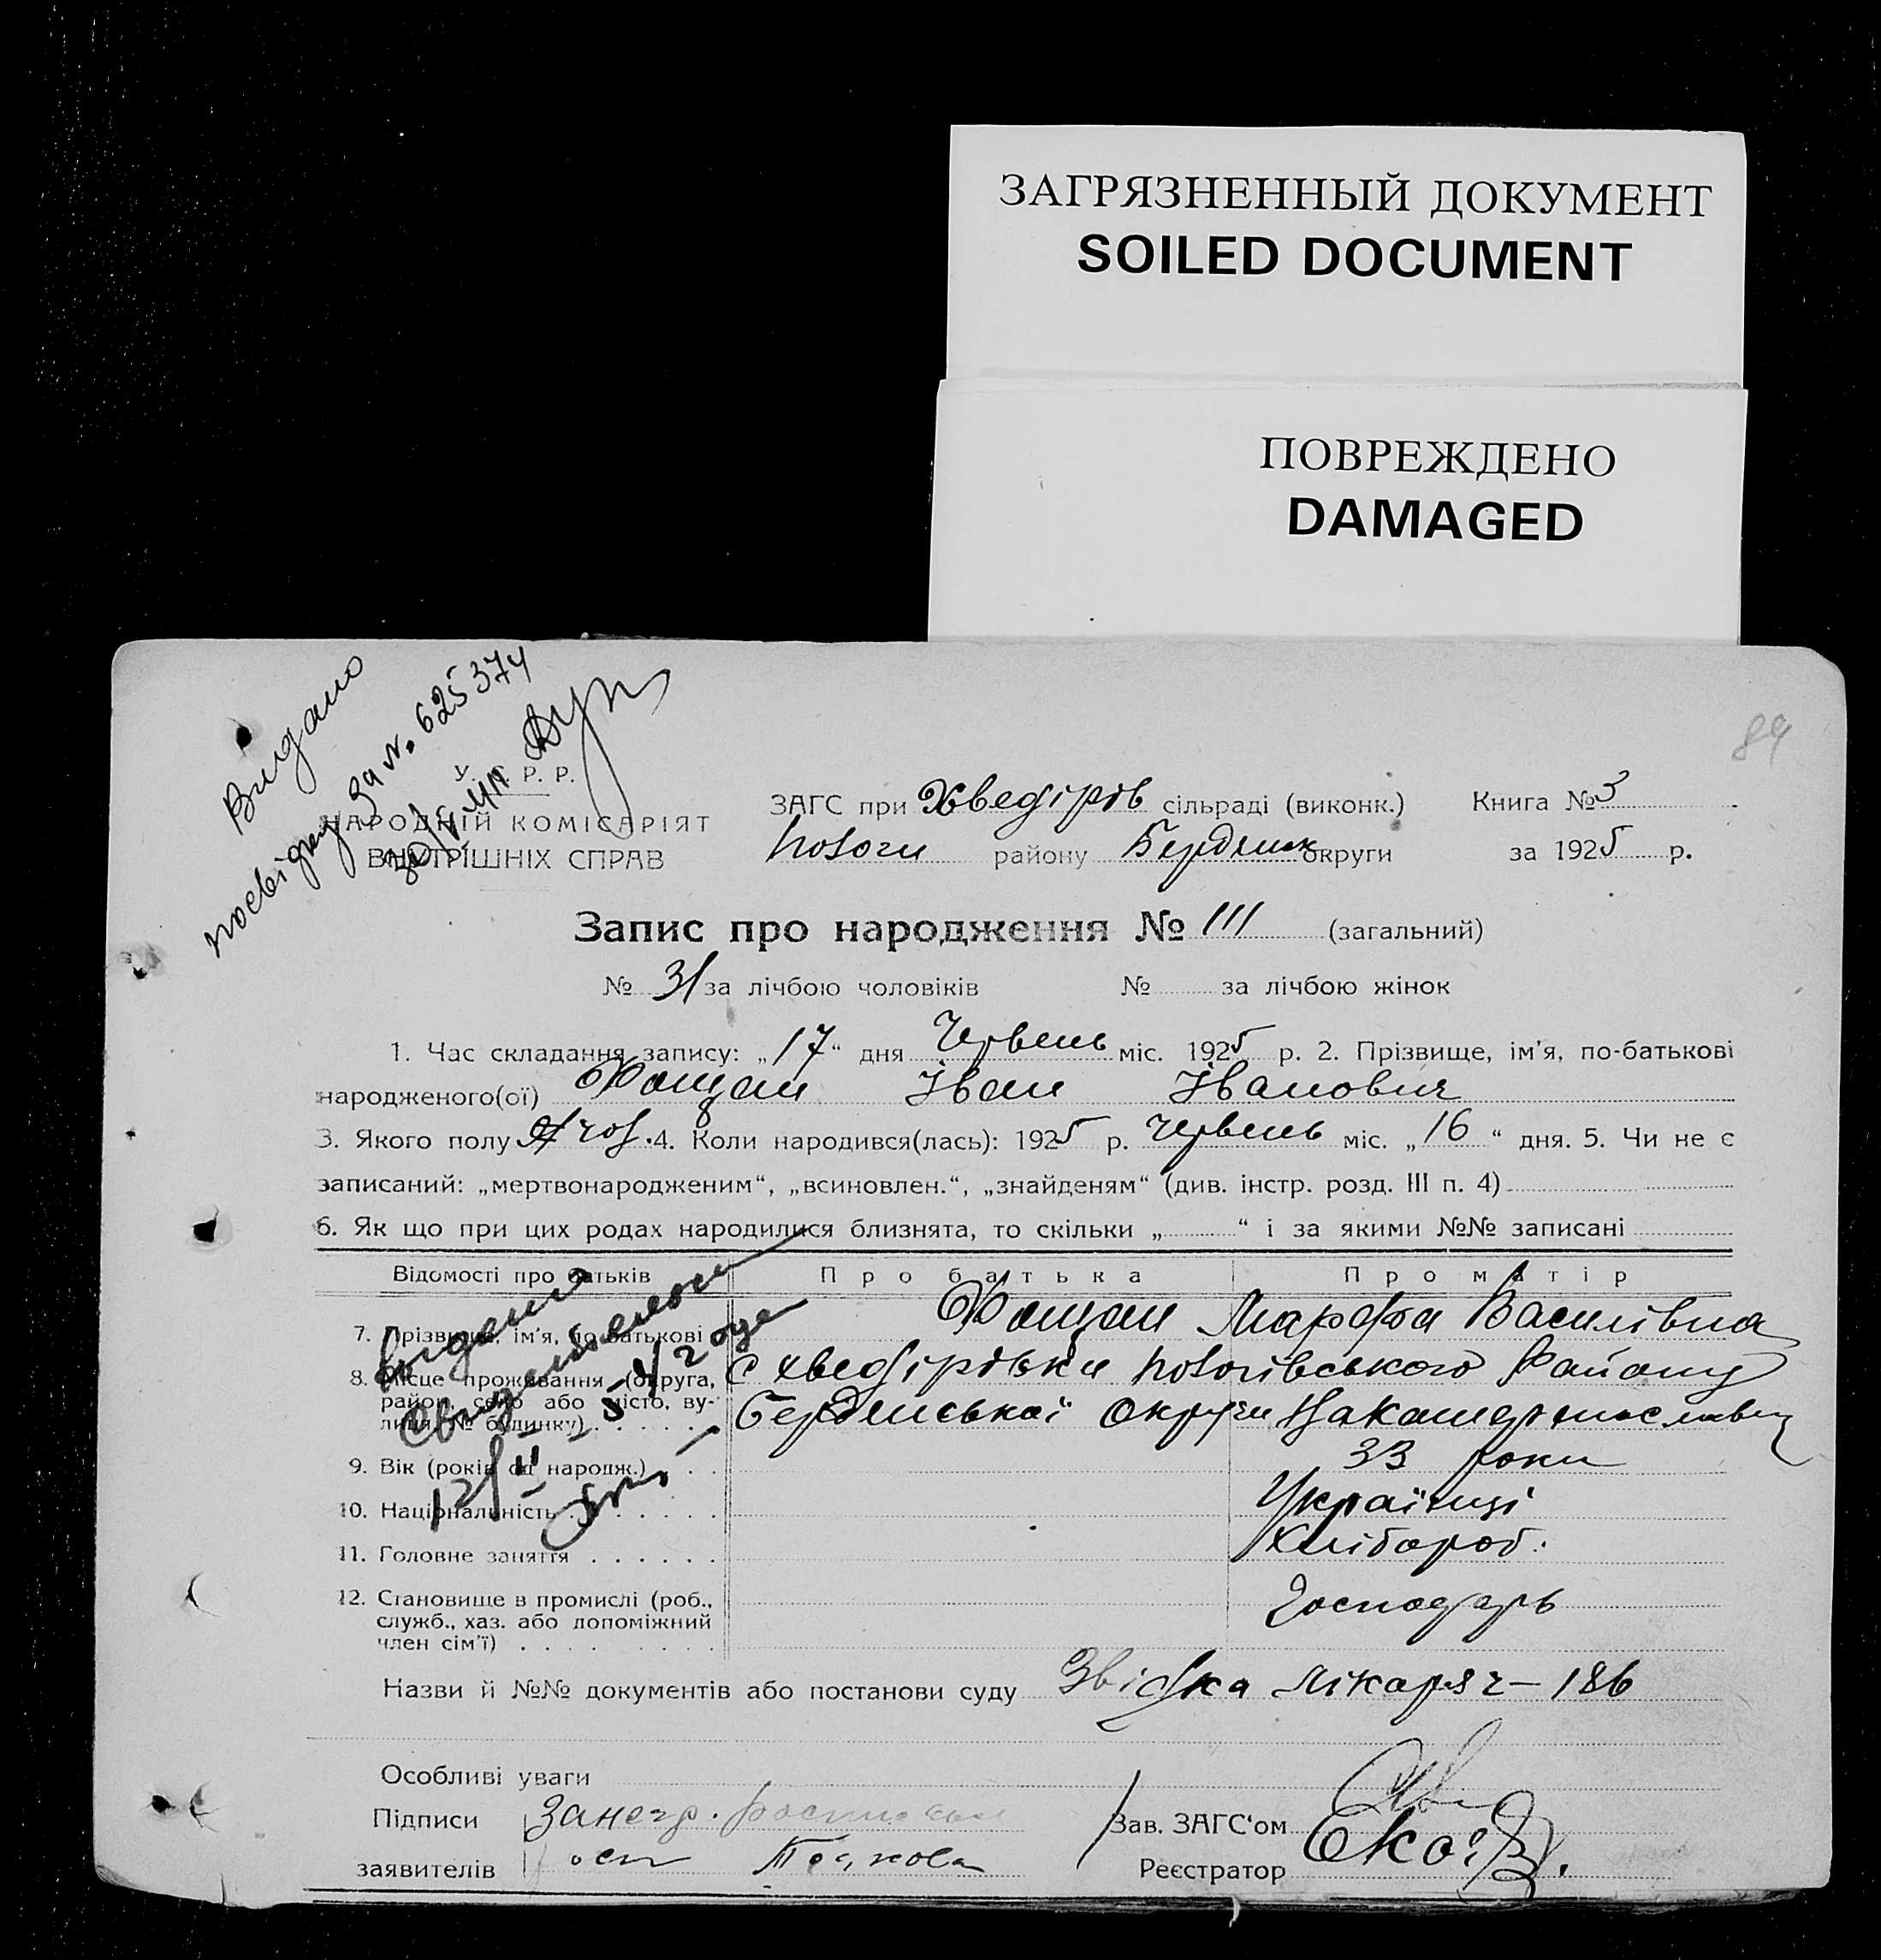 ЗАГРЯЗНЕННЫЙ ДОКУМЕНТ
SOILED DOCUMENT
ПОВРЕЖДЕНО
DAMAGED
84
Видано
посвідку за №. 625374
У. С. Р. Р.
НАРОДНІЙ КОМІСАРІЯТ
ВНУТРІШНІХ СПРАВ
ЗАГС при Хведірів сільраді (виконк.) Книга № 3
Пологи району Бердянск округи за 1925 р.
Запис про народження № 111 (загальний)
№ 31 за лічбою чоловіків № за лічбою жінок
1. Час складання запису: „17“ дня Червень міс. 1925 р. 2. Прізвище, ім'я, по-батькові
народженого(ої) Іван Іванович
3. Якого полу чол. 4. Коли народився(лась): 1925 р. червень міс. „16“ дня. 5. Чи не є
записаний: „мертвонародженим“, „всиновлен.“, „знайденям“ (див. інстр. розд. III п. 4)
6. Як що при цих родах народилися близнята, то скільки „ “ і за якими №№ записані
Відомості про батьків Про батька Про матір
7. Прізвище, ім'я, по батькові Марфа Василівна
8. Місце проживання (округа, с Хведірівки Пологівського Району
район, село або місто, ву-
лиця, № будинку) Бердянської Округи
9. Вік (років од народж.) 33 роки
10. Національність Українці
11. Головне заняття Хлібороб.
12. Становище в промислі (роб., Господарь
служб., хаз. або допоміжний
член сім'ї)
Выдано
свидетельство
Назви й №№ документів або постанови суду Звідка лікаря ч – 186
Особливі уваги
Підписи
заявителів
Зав. ЗАГС'ом
Реєстратор